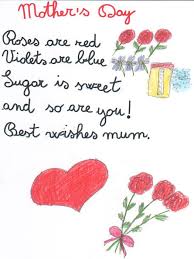 Mother's Day
Roses are red
Violets are blue
Sugar is sweet
and so are you!
Best wishes mum.